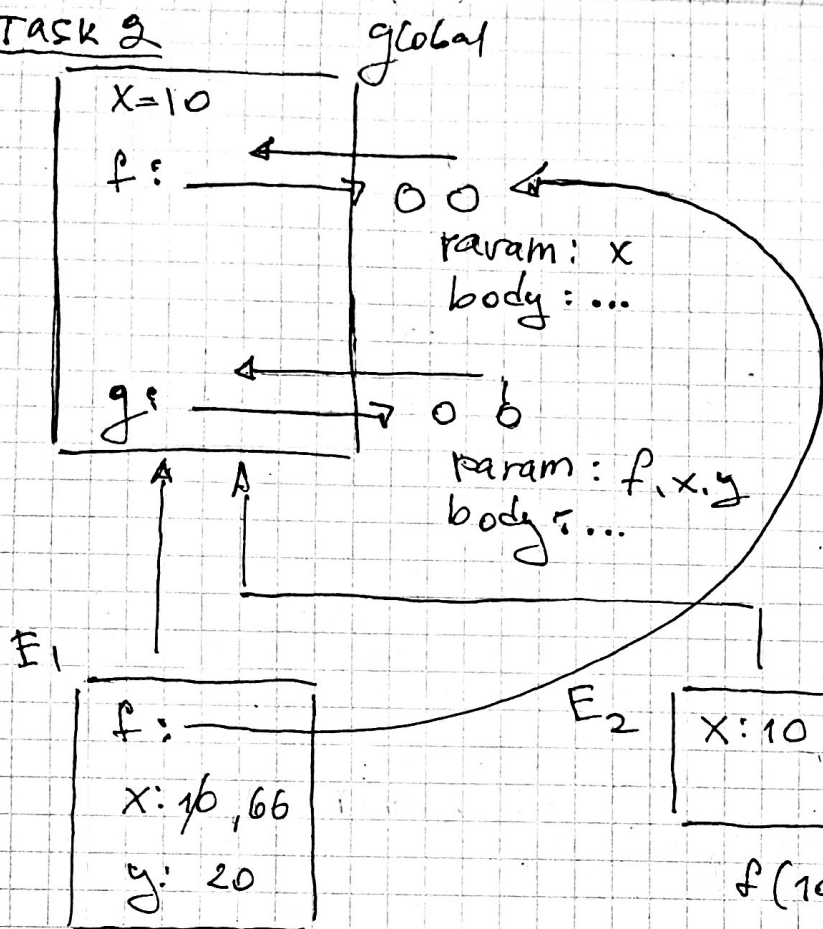 Task 2
global
x=10
f:
param: x
body: ...
g:
param: f, x, y
body: ...
E1
f:
x: 10, 66
y: 20
E2
x: 10
f(10